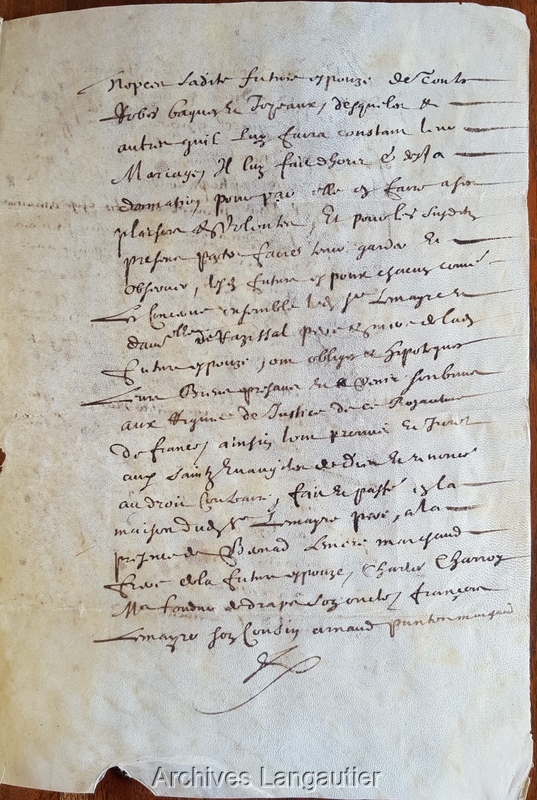 nopces Ladite future espouze de toute
Robes bagues et Joyeaux, desquelz et
autres quil luy faira constant leur
Mariage, Il luy fait dhors et desia
donnation pour par elle en faire a son
plaisir et Volonte, Et pour les susdits
presens pactes faire tenir garder et
observer, lesd future espoux chacun comme
Le Concerne ensemble led Sr Lemayre et
damelle de pere et mere de lad
future espouze, ont obliges et hipoteque
Leurs Biens presans et a Venir soubmis
aux Rigeurs de Justice de ce Royaume
de france, ainsin lont promis et Jure
aux Saintz Evangiles de Dieu et renonce
au droit Contraire, fait et passé en la
maison dud Sr Lemayre pere, a la
presence de Lemere marchand
frere de la future espouze, Charles
Me fondur de draps Son oncle, françois
Lemayre son Cousin arnaud
Archives Langautier